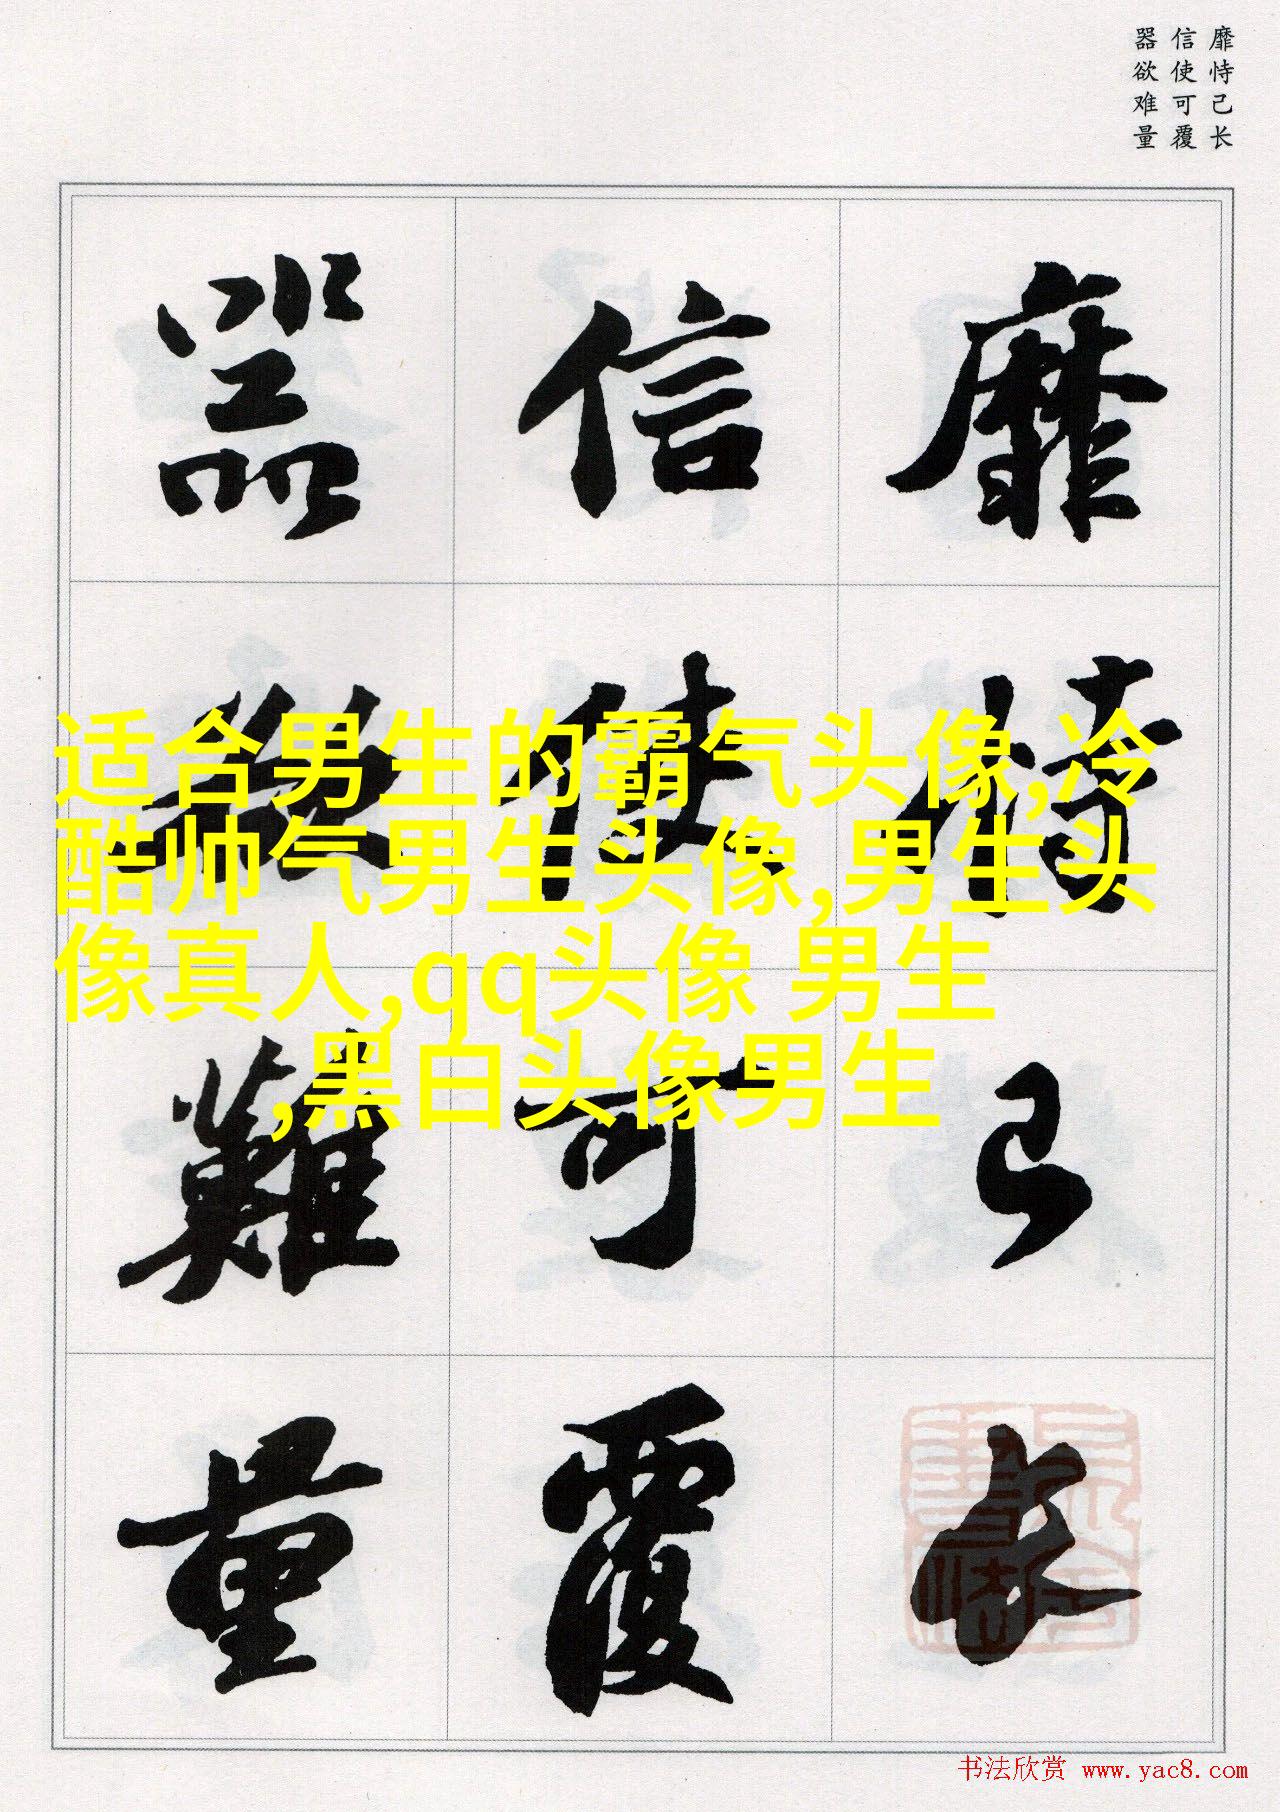 靡恃己长
信使可覆
器欲难量
靡恃己長
信使可覆
器欲難量
适合男生的霸气头像,冷
酷帅气男生头像,男生头
像真人,qq头像 男生
,黑白头像男生
书法欣赏 www.yac8.com